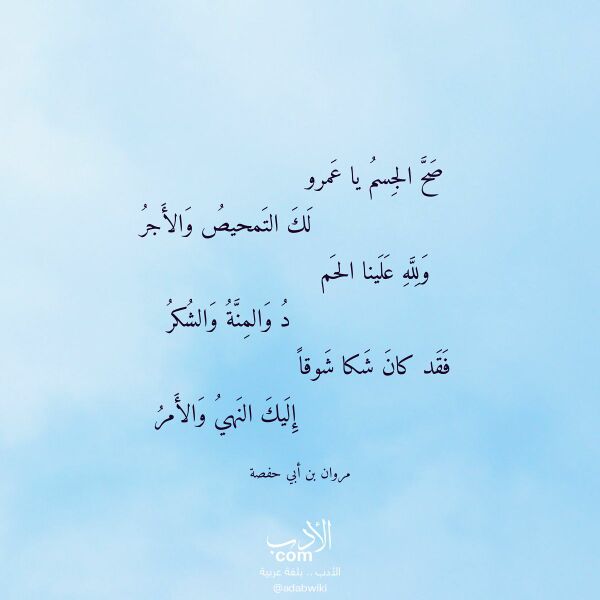 صَحَّ الجِسمُ يا عَمرو
لَكَ التَمحيصُ وَالأَجرُ
وَلِلَّهِ عَلَينا الحَم
دُ وَالمِنَّةُ وَالشُكرُ
فَقَد كانَ شَكا شَوقاً
إِلَيكَ النَهيُ وَالأَمرُ
مروان بن أبي حفصة
الأدب
com
الأدب .. بلغة عربية
@adabwiki